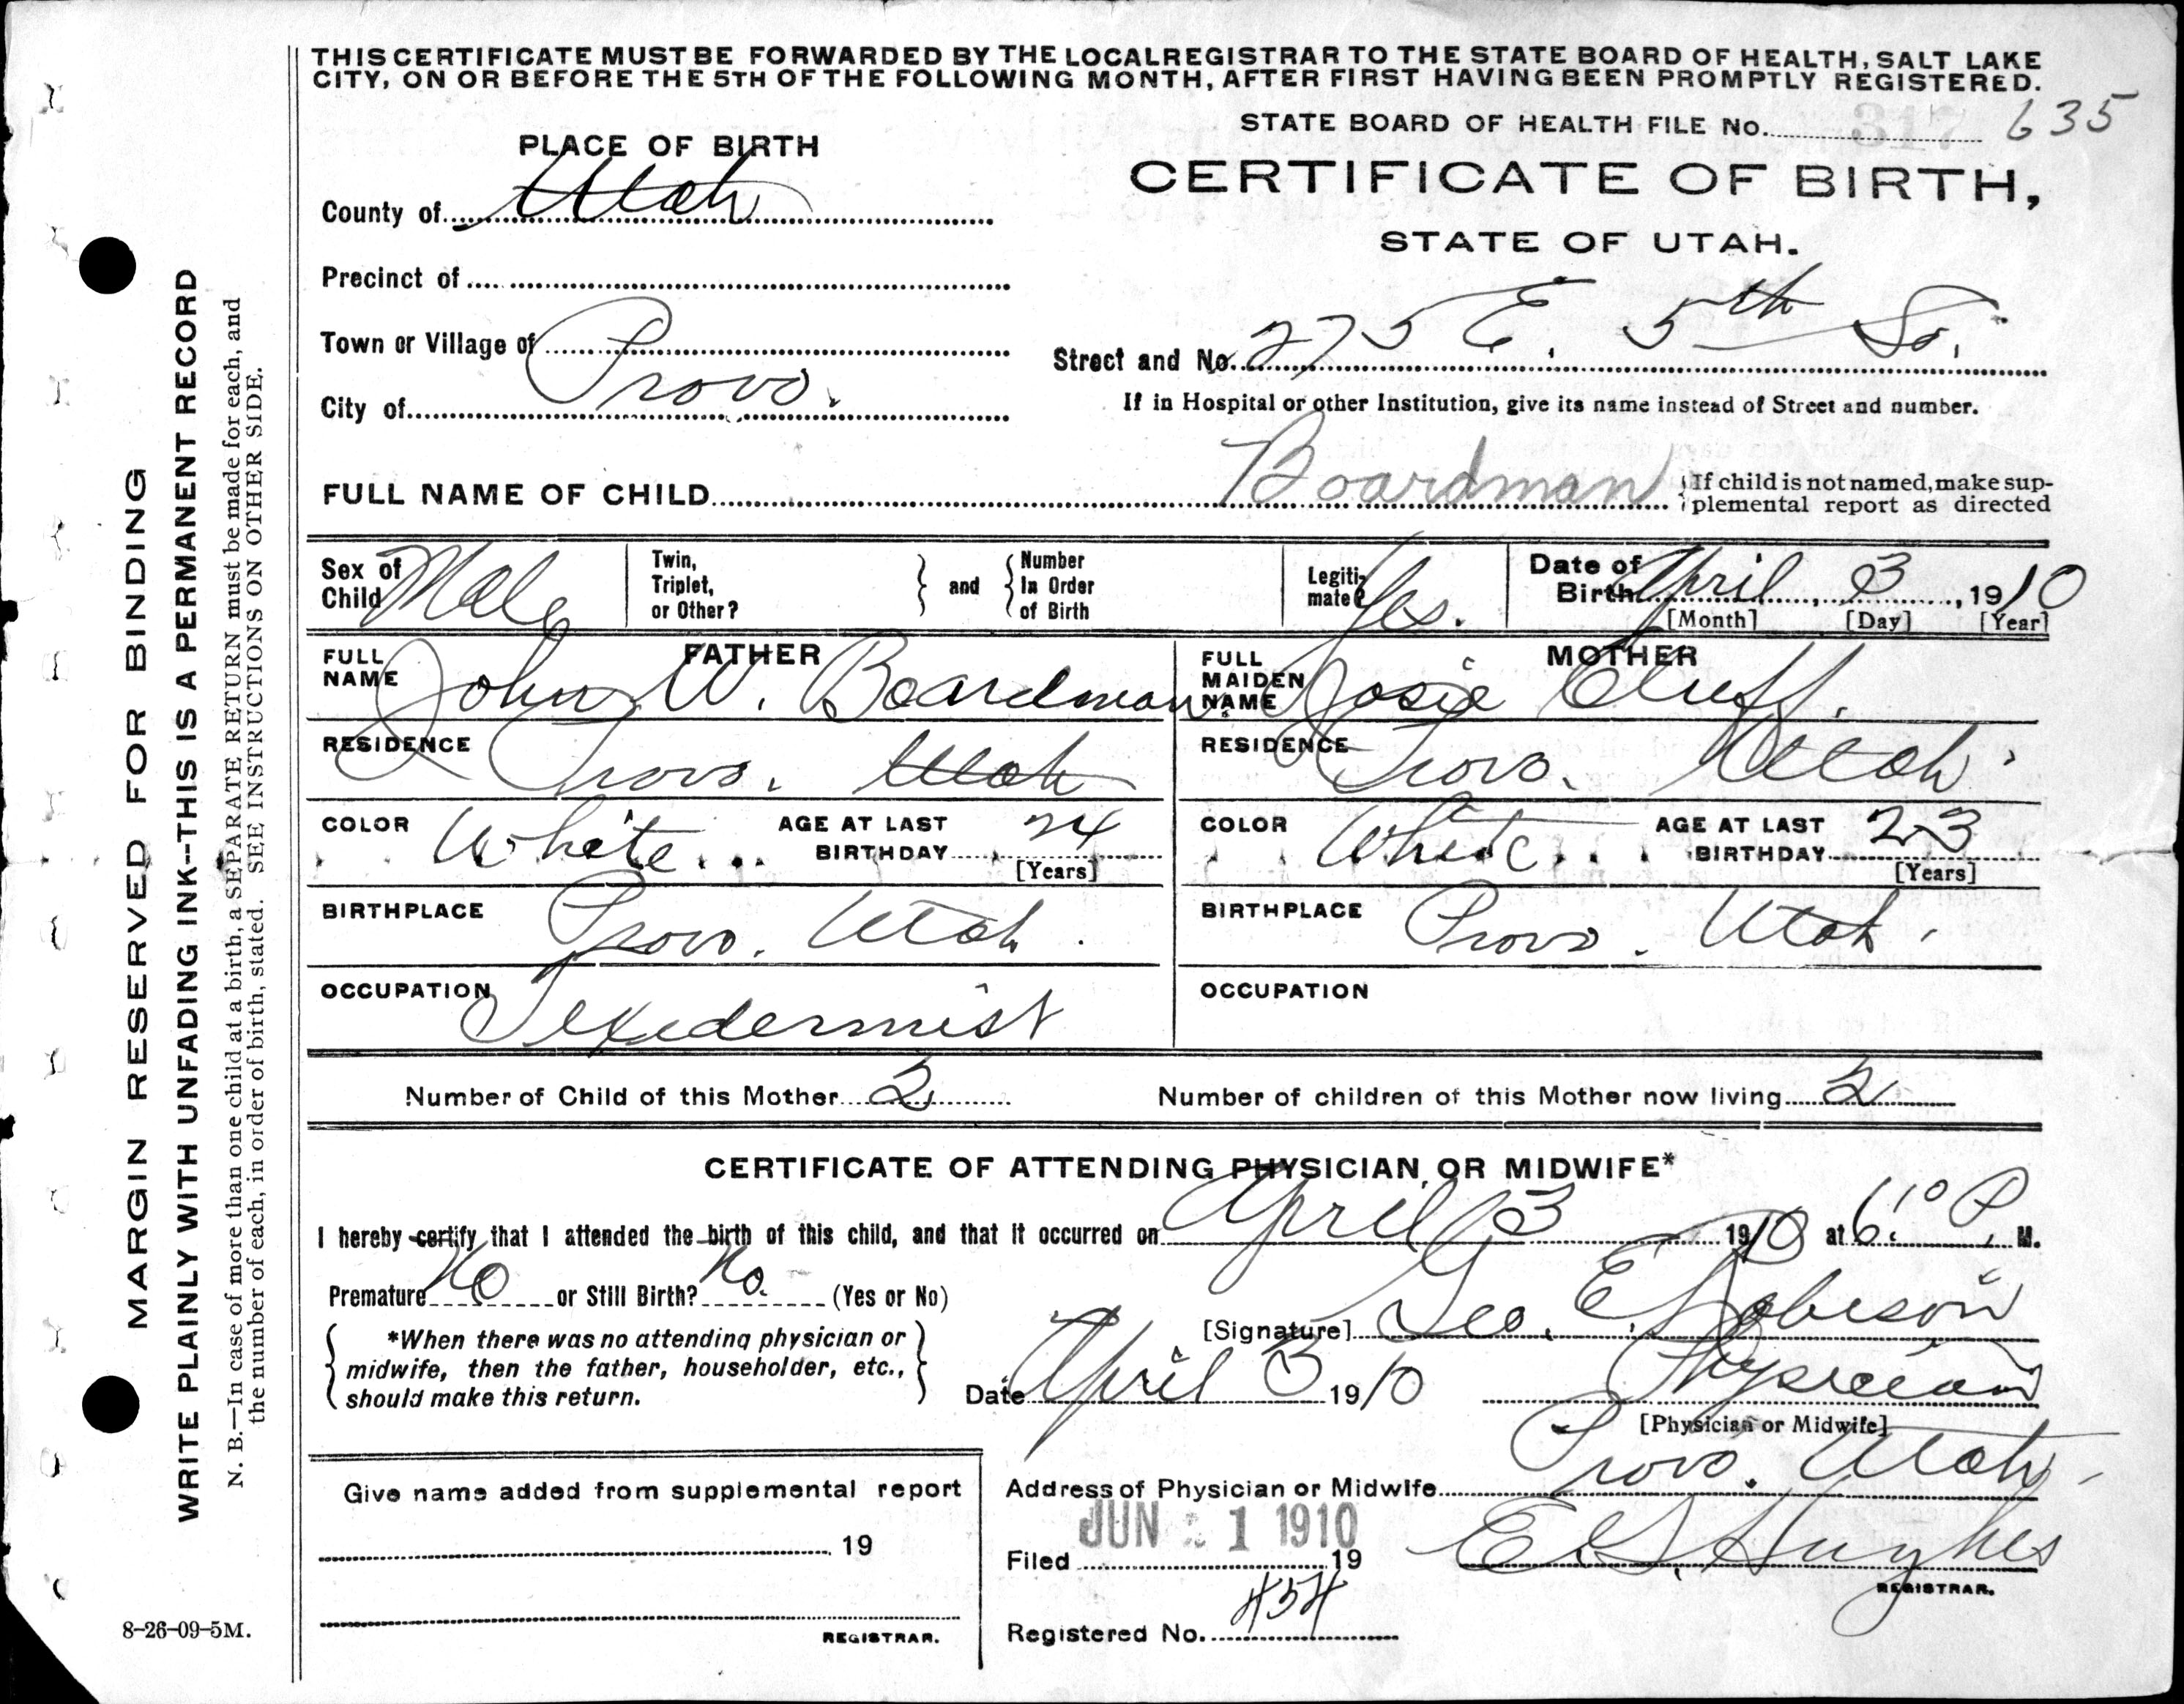 THIS CERTIFICATE MUST BE FORWARDED BY THE LOCAL REGISTRAR TO THE STATE BOARD OF HEALTH, SALT LAKE
CITY, ON OR BEFORE THE 5TH OF THE FOLLOWING MONTH, AFTER FIRST HAVING BEEN PROMPTLY REGISTERED.
STATE BOARD OF HEALTH FILE No. 635
PLACE OF BIRTH
CERTIFICATE OF BIRTH,
STATE OF UTAH.
County of Utah
Precinct of
Town or Village of
City of Provo.
Street and No. 275 E. 5th So.
If in Hospital or other Institution, give its name instead of Street and number.
FULL NAME OF CHILD Boardman
If child is not named, make sup-
plemental report as directed
Sex of Child Male
Twin, Triplet, or Other?
and
Number In Order of Birth
Legiti-mate? Yes.
Date of Birth April 3, 1910
[Month] [Day] [Year]
FATHER
FULL NAME John W. Boardman
RESIDENCE Provo. Utah
COLOR White. AGE AT LAST BIRTHDAY 24
[Years]
BIRTHPLACE Provo. Utah.
OCCUPATION Texedermist
MOTHER
FULL MAIDEN NAME Josie Cluff.
RESIDENCE Provo. Utah.
COLOR White. AGE AT LAST BIRTHDAY 23
[Years]
BIRTHPLACE Provo. Utah.
OCCUPATION
Number of Child of this Mother 2
Number of children of this Mother now living 2
CERTIFICATE OF ATTENDING PHYSICIAN OR MIDWIFE*
I hereby certify that I attended the birth of this child, and that it occurred on April 3 1910 at 6:10 P. M.
Premature No or Still Birth? No. (Yes or No)
*When there was no attending physician or
midwife, then the father, householder, etc.,
should make this return.
[Signature] Geo. E. Robison
Date April 3 1910 Physician
[Physician or Midwife]
Address of Physician or Midwife Provo. Utah.
Give name added from supplemental report
19
REGISTRAR.
JUN 1 1910
Filed 19 E. G. Hughes
REGISTRAR.
Registered No. 454
MARGIN RESERVED FOR BINDING
WRITE PLAINLY WITH UNFADING INK--THIS IS A PERMANENT RECORD
N. B.—In case of more than one child at a birth, a SEPARATE RETURN must be made for each, and
the number of each, in order of birth, stated. SEE INSTRUCTIONS ON OTHER SIDE.
8-26-09-5M.